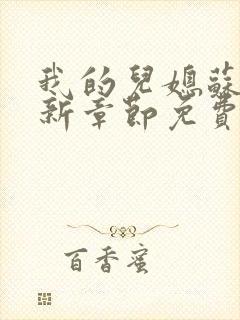 我的兒媳蘇
新章節免費
百香蜜